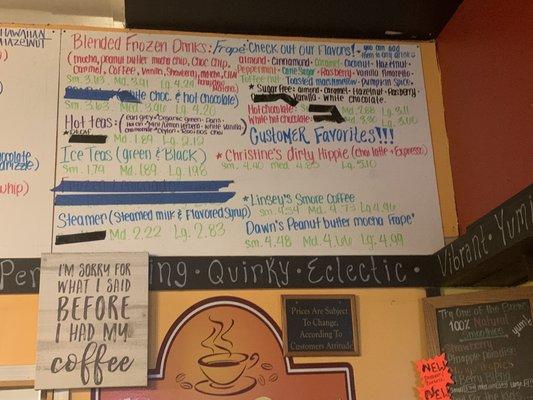 HAWAIIAN
HAZELNUT
Blended Frozen Drinks: Frapé
(mocha, Peanut butter mocha chip, Choc chip,
Caramel, Coffee, Vanilla, Strawberry, Matcha, Chai
Sm. 3.63 Md. 3.91 Lg. 4.24
White Choc. & hot chocolate)
Sm. 3.63 Md. 3.96 Lg. 4.26
Hot teas:
Md. 1.89 Lg. 2.12
Ice Teas (green & Black)
Sm. 1.79 Md. 1.89 Lg. 1.96
Steamer (Steamed milk & Flavored Syrup)
Md. 2.22 Lg. 2.83
Check out our Flavors!
you can add
Almond - Cinnamon - Caramel - Coconut - Hazelnut -
Peppermint - Raspberry - Vanilla
Toffee nut - Toasted marshmallow - Pumpkin Spice
* Sugar free: almond - Caramel - Hazelnut - Raspberry -
Vanilla - White chocolate
Hot chocolate:
White hot chocolate:
Customer Favorites!!!
* Christine's dirty Hippie (chai latte + Espresso)
Sm. 4.40 Lg. 5.10
* Linsey's Smore Coffee
Sm. 4.54 Md. 4.73 Lg. 4.96
Dawn's Peanut butter mocha Frapé
Sm. 4.48 Md. 4.66 Lg. 4.99
Quirky · Eclectic ·
Vibrant ·
I'M SORRY FOR
WHAT I SAID
BEFORE
I HAD MY
coffee
Prices Are Subject
To Change,
According To
Customers Attitude
100% Natural
yum!
Strawberry
Pineapple Paradise
NEW
NEW